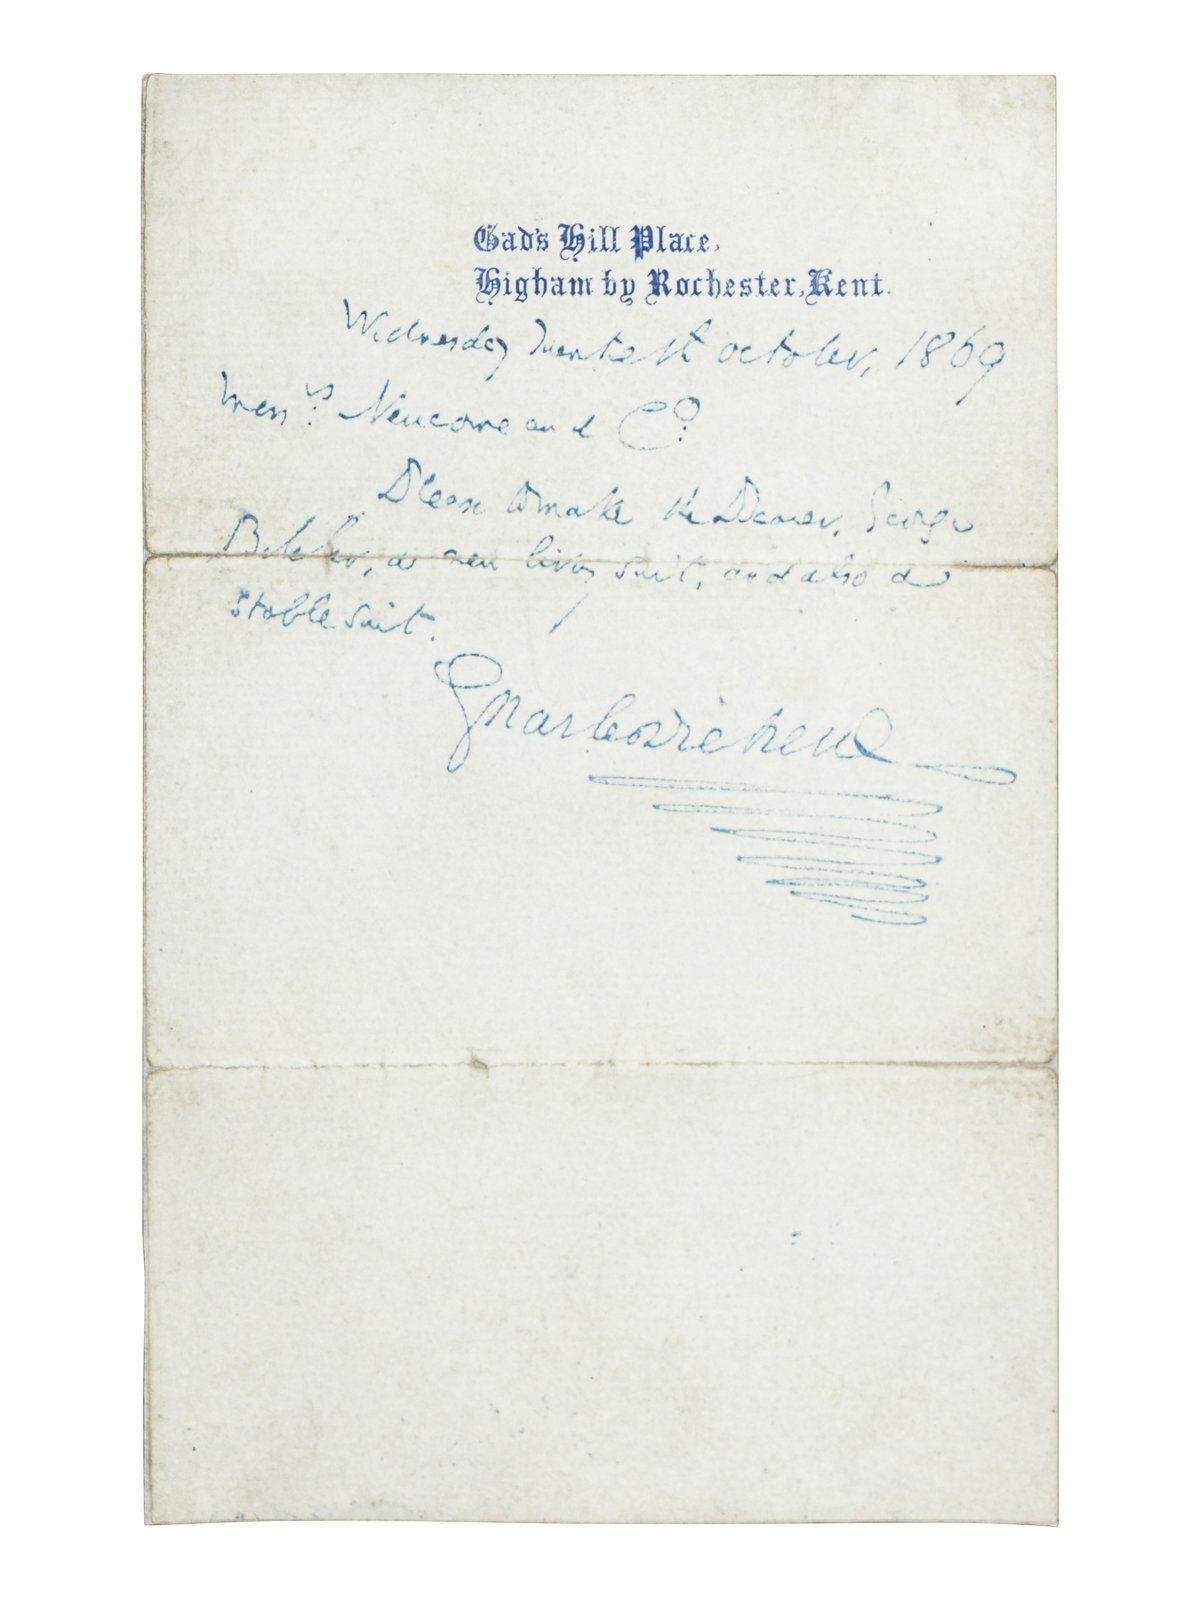 Gad's Hill Place,
Higham by Rochester, Kent.
Wednesday Twentieth October, 1869
Messrs. Newcome and Co.
Please to make the Bearer, George
Butler, a new livery suit, and also a
stable suit.
Charles Dickens